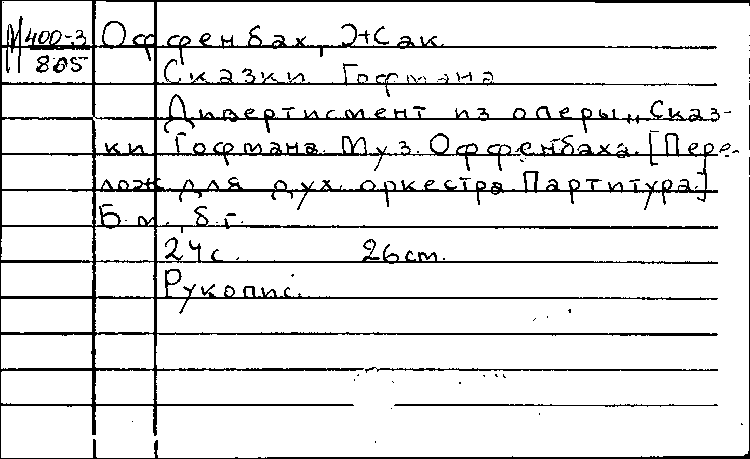 М 400-3 Оффенбах, Жак.
805
Сказки Гофмана
Дивертисмент из оперы „Сказ-
ки Гофмана. Муз. Оффенбаха. [Пере-
лож. для дух. оркестра. Партитура.]
Б. м., б. г.
24 с. 26 ст.
Рукопис.